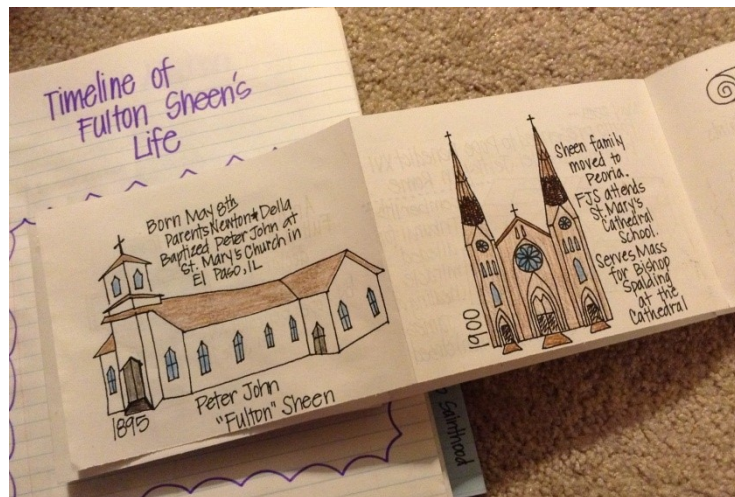 Timeline of
Fulton Sheen's
Life
Born May 8th
Parents Newton & Della
Baptized Peter John at
St. Mary's Church in
El Paso, IL
1895
Peter John
"Fulton" Sheen
1900
Sheen family
moved to
Peoria.
FJS attends
St. Mary's
Cathedral
School.
Serves Mass
for Bishop
Spalding
at the
Cathedral
Sainthood